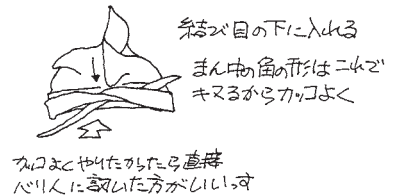 結び目の下に入れる
まん中の角の形はこれで
キマるからカッコよく
カッコよくやりたかったら直接
ベリ人に訊いた方がいいっす